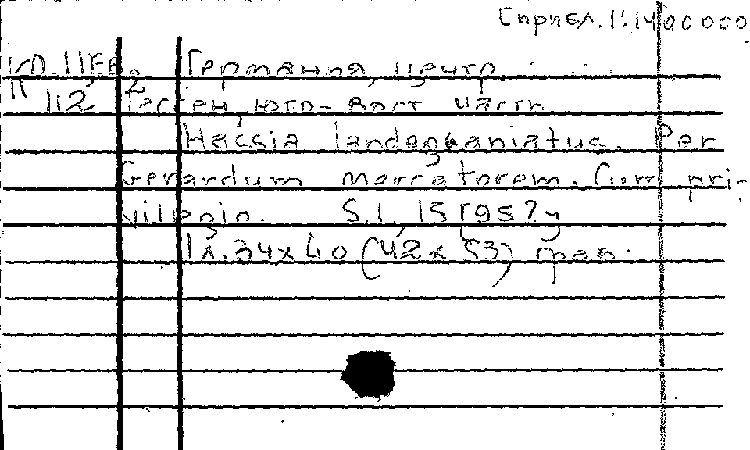 [приб]л. 1:1400000
Ко. 11, Германия, центр.
112 Гессен, юго-вост. часть
Hassia landgraniatus. Per
Gerardum Mercatorem. Cum pri-
vilegio. S.l., 15[95?]
1 л. 34x40 (42x53) грав.